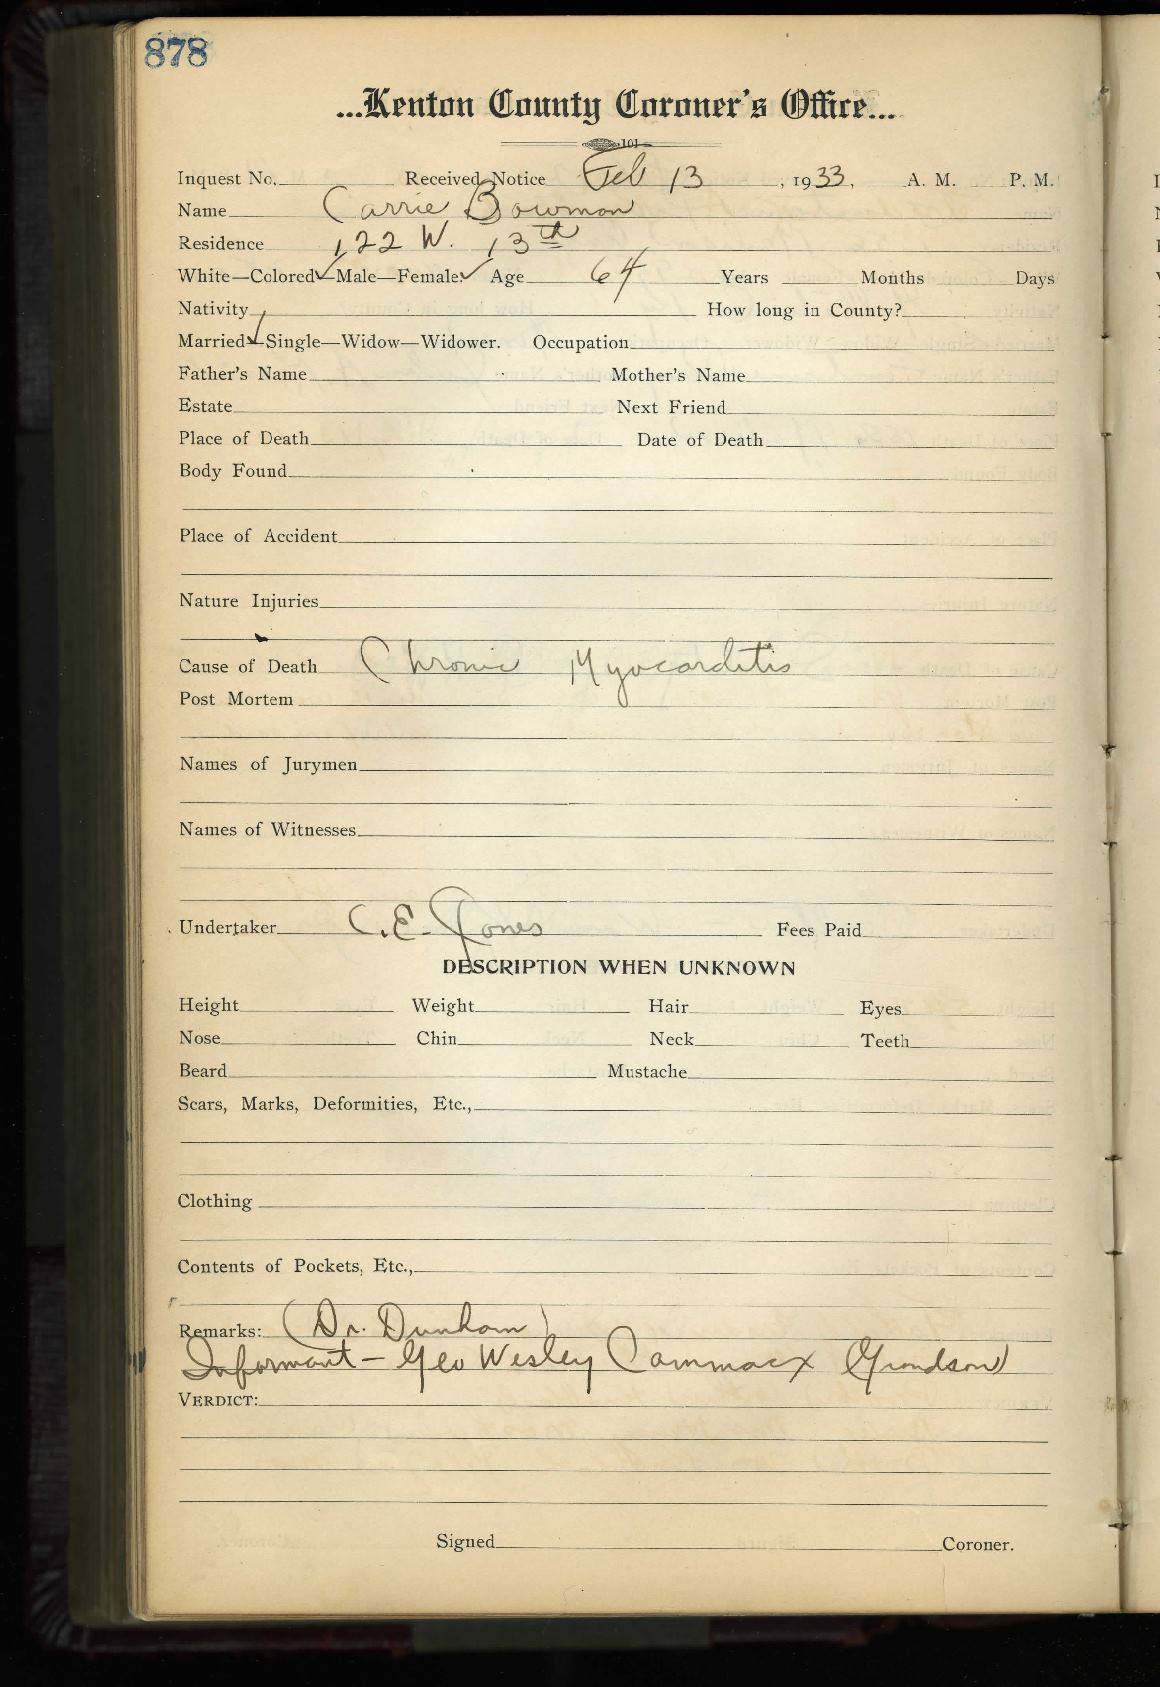 878
...Kenton County Coroner's Office...
101
Inquest No. Received Notice Feb 13, 1933, A. M. P. M.
Name Carrie Bowman
Residence 122 W. 13th
White—Colored✓Male—Female✓ Age 64 Years Months Days
Nativity How long in County?
Married✓Single—Widow—Widower. Occupation
Father's Name Mother's Name
Estate Next Friend
Place of Death Date of Death
Body Found
Place of Accident
Nature Injuries
Cause of Death Chronic Myocarditis
Post Mortem
Names of Jurymen
Names of Witnesses
Undertaker C.E. Jones Fees Paid
DESCRIPTION WHEN UNKNOWN
Height Weight Hair Eyes
Nose Chin Neck Teeth
Beard Mustache
Scars, Marks, Deformities, Etc.,
Clothing
Contents of Pockets, Etc.,
Remarks: (Dr. Dunham)
Informant - Geo Wesley Cammack (Grandson)
VERDICT:
Signed Coroner.